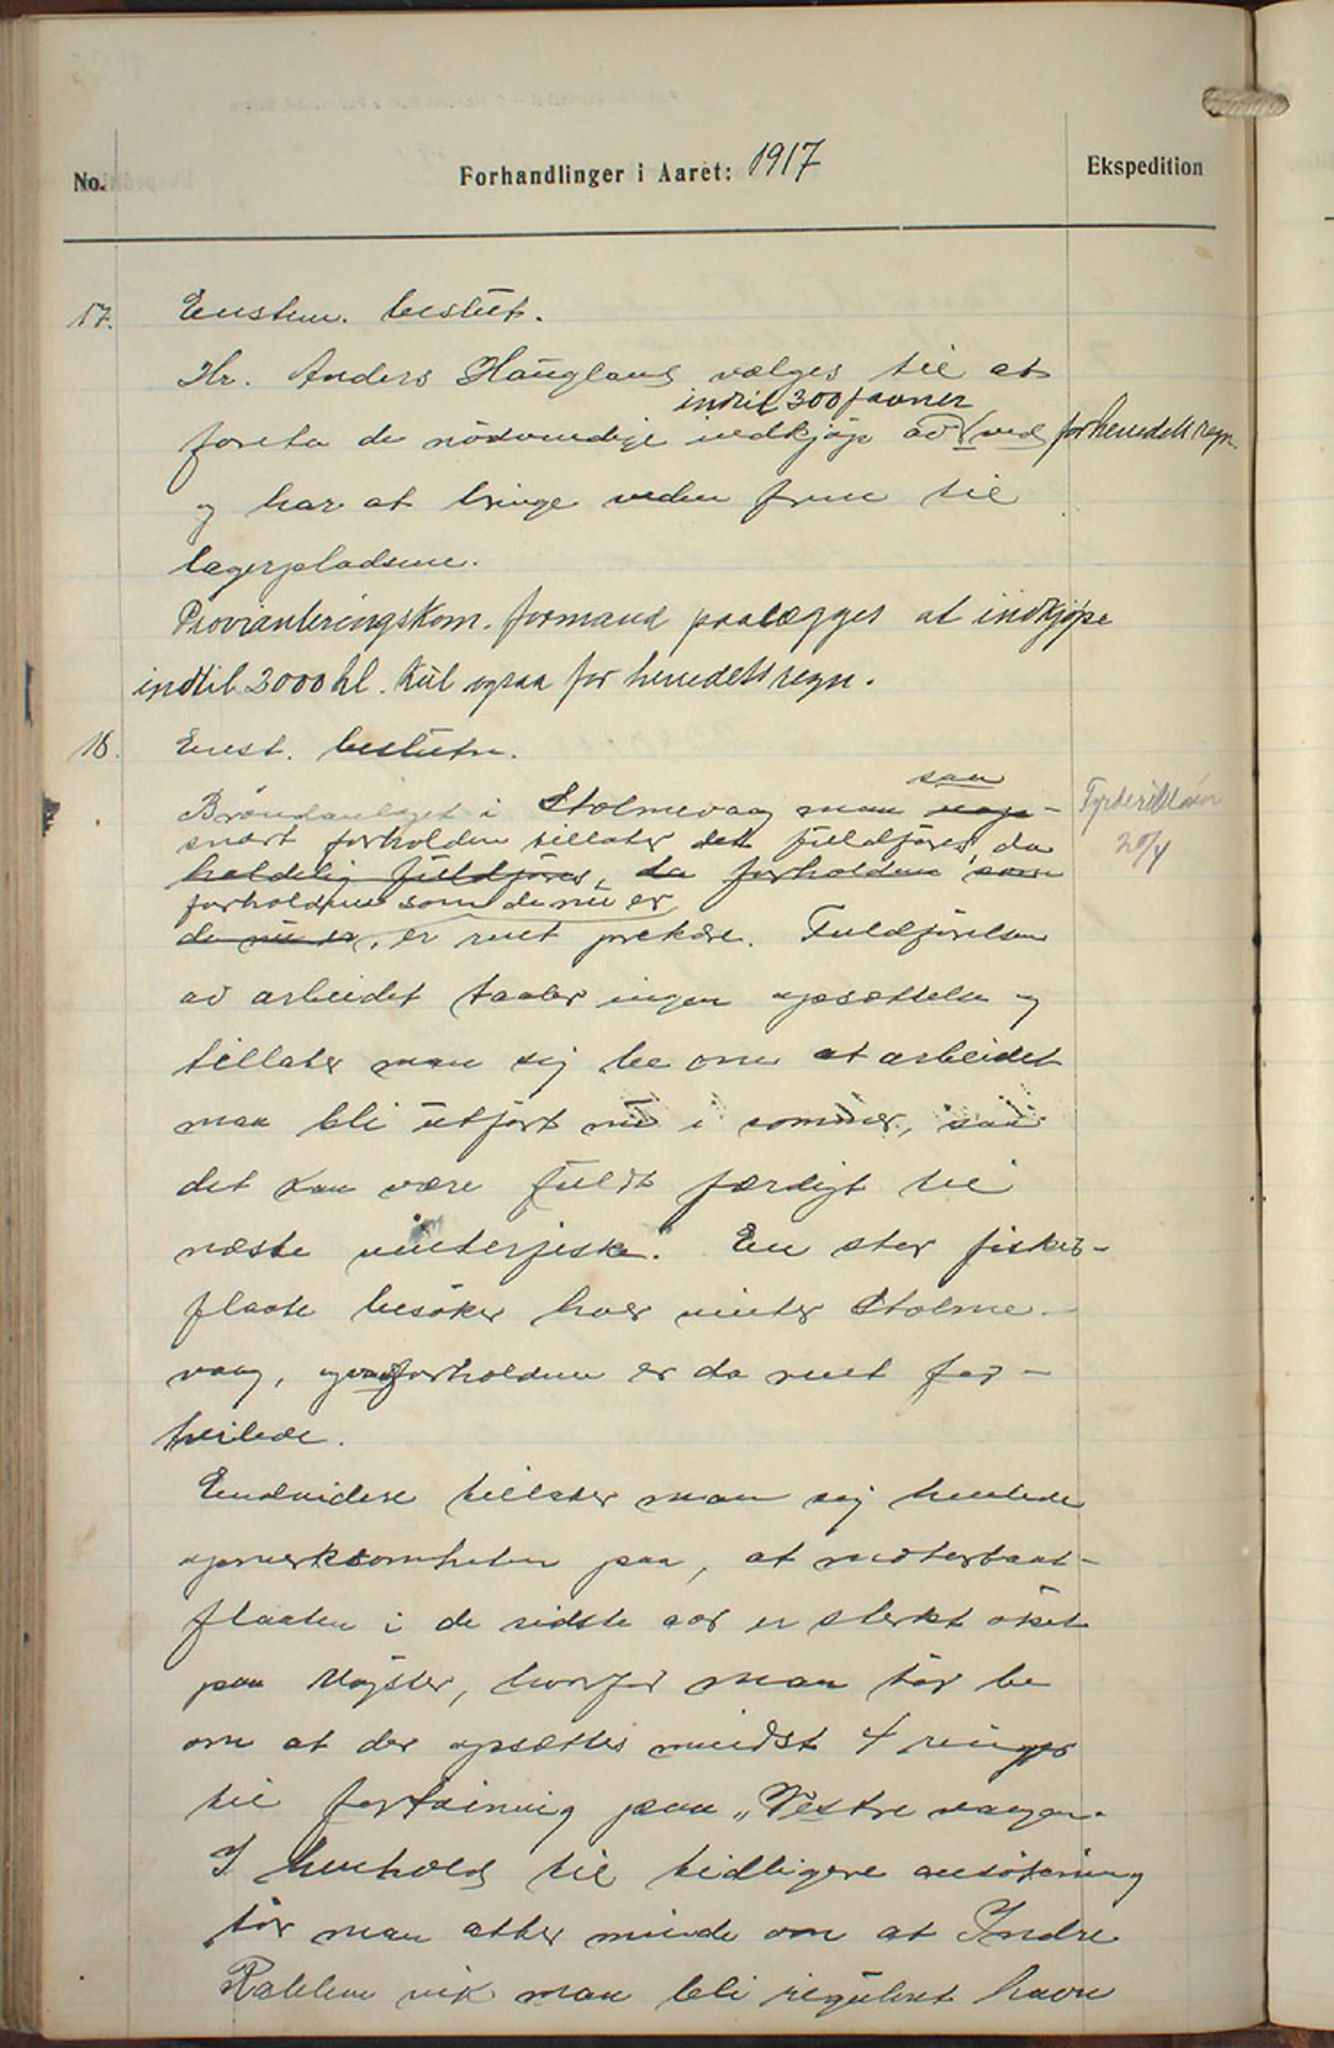 No.
Forhandlinger i Aaret: 1917
Ekspedition
17. Enstem. beslut.
Hr. Anders Haugland vælges til at
indtil 300 favner
foreta de nödvendige indkjøp av ved for herredets regn.
og har at bringe veden frem til
lagerpladsene.
Provianteringskom. formand paalægges at indkjøpe
indtil 3000 hl. kul ogsaa for herredets regn.
18. Enst. beslutn.
saa
Bröndanlæget i Stolmevaag maa
snart forholdene tillater det fuldføres, da
heldelig fuldføres, da forholdene som
forholdene som de nu er
de nu er, er rent prekære. Fuldförelsen
av arbeidet taaler ingen opsættelse og
tillater man sig be om at arbeidet
maa bli utfört nu i sommer, saa
det kan være fuldt færdigt til
næste vinterfiske. En stor fisker-
flaate besöker hver vinter Stolme-
vaag, og vandforholdene er da rent for-
tvilede.
Endvidere tillater man sig henlede
opmerksomheten paa, at motorbaat-
flaaten i de sidste aar er sterkt öket
paa Møgster, hvorfor man tör be
om at der opsættes mindst 4 ringer
til fortöining paa "Vestre vaagen.
I henhold til tidligere ansökning
tör man atter minde om at Indre
vik maa bli regulert havn
20/4